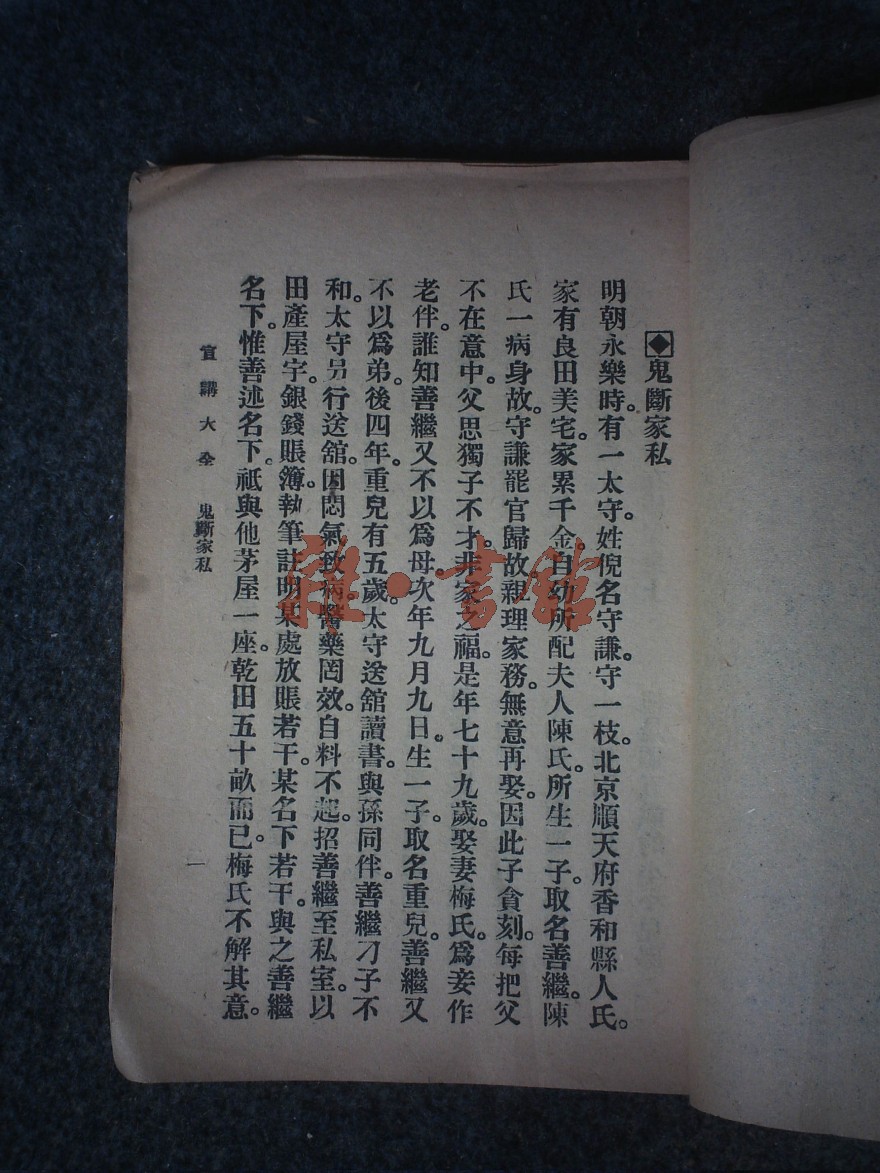 鬼斷家私
明朝永樂時。有一太守。姓倪名守謙。守一枝。北京順天府香和縣人氏。
家有良田美宅。家累千金。自幼所配夫人陳氏。所生一子。取名善繼。陳
氏一病身故。守謙罷官歸故。親理家務。無意再娶。因此子貪刻。每把父
不在意中。父思獨子不才。非家之福。是年七十九歲。娶妻梅氏。爲妾作
老伴。誰知善繼又不以爲母。次年九月九日。生一子。取名重兒。善繼又
不以爲弟。後四年。重兒有五歲。太守送舘讀書。與孫同伴。善繼刁子不
和。太守另行送舘。因悶氣致病。醫藥罔效。自料不起。招善繼至私室。以
田產屋宇。銀錢賬簿。執筆註明某處放賬若干。某名下若干。與之善繼
名下。惟善述名下。祇與他茅屋一座。乾田五十畝而已。梅氏不解其意。
宣講大全 鬼斷家私 一
雜·書館